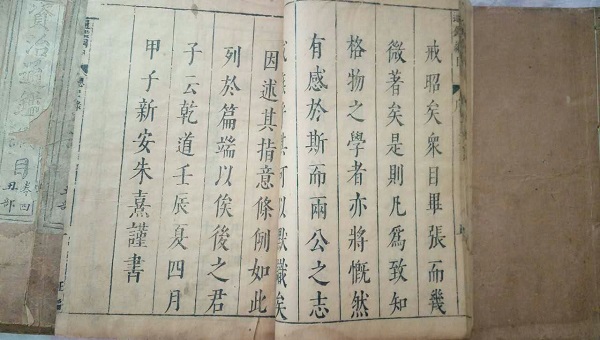 戒昭矣衆目畢張而幾
微著矣是則凡爲致知
格物之學者亦將慨然
有感於斯而兩公之志
以默識矣
因述其指意條例如此
列於篇端以俟後之君
子云乾道壬辰夏四月
甲子新安朱熹謹書
資治通鑑
目